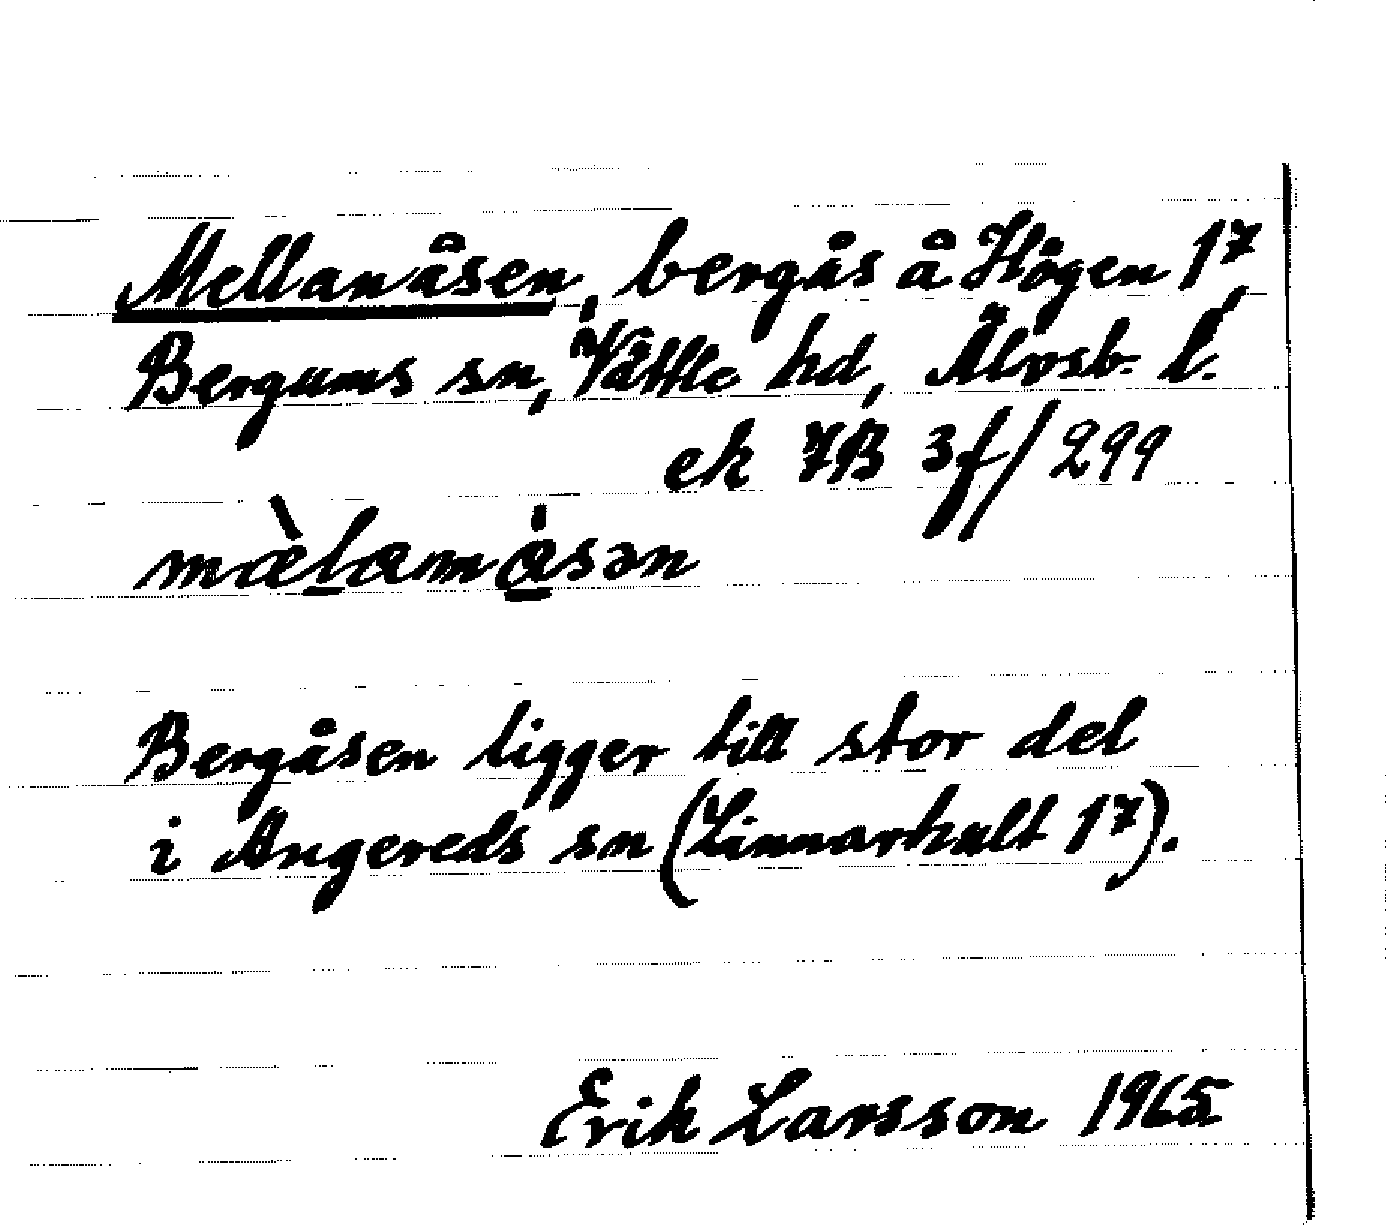 Mellanåsen, bergås å Högen 1⁷,
Bergums sn, Vättle hd, Älvsb. l.
ek 7B 3f/299
mæ̀lam å̀sən
Bergåsen ligger till stor del
i Angereds sn (Linnarhult 1⁷).
Erik Larsson 1965